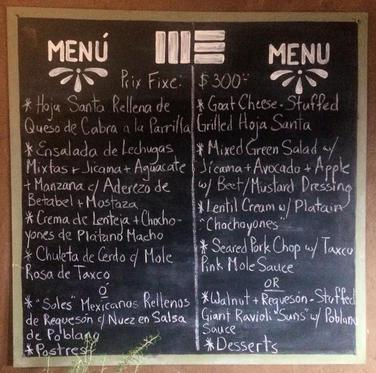 MENÚ
Prix Fixe:
* Hoja Santa Rellena de
Queso de Cabra a la Parrilla
* Ensalada de Lechugas
Mixtas + Jícama + Aguacate
+ Manzana c/ Aderezo de
Betabel + Mostaza
* Crema de Lenteja + Chocho-
yones de Plátano Macho
* Chuleta de Cerdo c/ Mole
Rosa de Taxco
O
* "Soles" Mexicanos Rellenos
de Requesón c/ Nuez en Salsa
de Poblano
* Postres
MENU
$300
* Goat Cheese-Stuffed
Grilled Hoja Santa
* Mixed Green Salad w/
Jícama + Avocado + Apple
w/ Beet/Mustard Dressing
* Lentil Cream w/ Platain
"Chochoyones"
* Seared Pork Chop w/ Taxco
Pink Mole Sauce
OR
* Walnut + Requesón-Stuffed
Giant Ravioli "Suns" w/ Poblano
Sauce
* Desserts